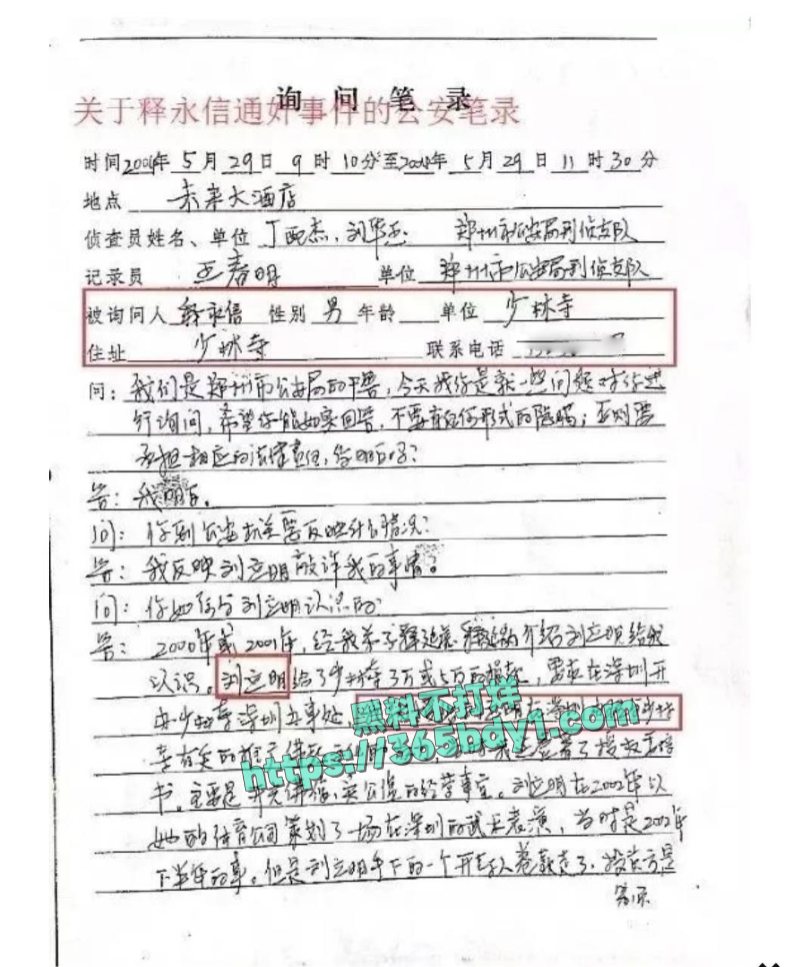 询问笔录
关于释永信通奸事件的公安笔录
时间2004年5月29日9时10分至2004年5月29日11时30分
地点 未来大酒店
侦查员姓名、单位 丁 杰、刘华 郑州市公安局刑侦支队
记录员 王春明 单位 郑州市公安局刑侦支队
被询问人 释永信 性别 男 年龄 单位 少林寺
住址 少林寺 联系电话
问：我们是郑州市公安局的干警，今天找你是就一些问题对你进
行询问，希望你能如实回答，不要有任何形式的隐瞒；否则要
承担相应的法律责任，你明白吗？
答：我明白。
问：你到公安机关要反映什么情况？
答：我反映刘立明敲诈我的事情。
问：你如何与刘立明认识的？
答：2000年或2001年，经我弟子释延 介绍刘立明给我
认识。刘立明给了少林寺3万或5万的捐款，要求在深圳开
办少林寺深圳办事处，
黑料不打烊
https://365bdy1.com
书，主要是 实公益的经营事宜。刘立明在2002年以
她的体育公司策划了一场在深圳的武术表演，当时是2002年
下半年的事。但是刘立明手下的一个 人卷款走了。投资方是